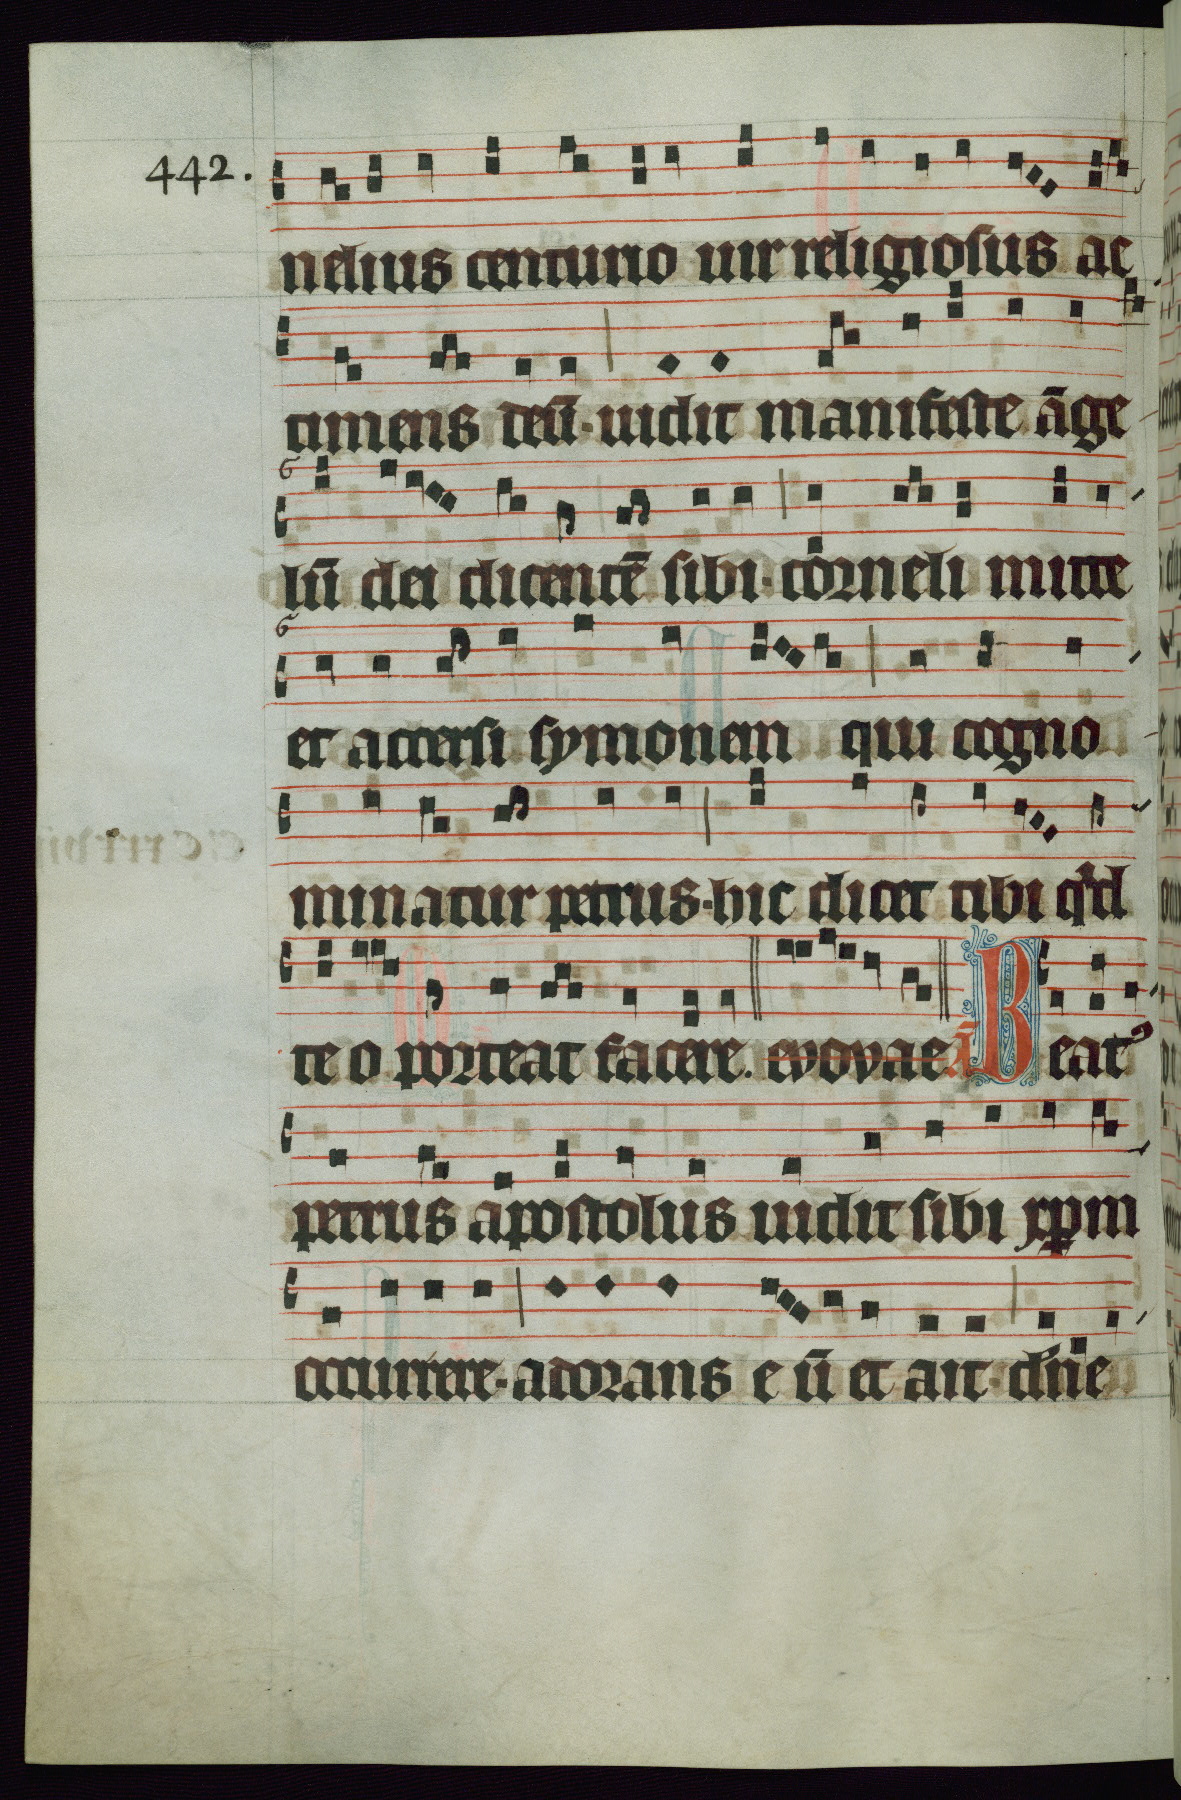 442.
nelius centurio uir religiosus ac
timens deū · uidit manifeste āge
lū dei dicentē sibi · corneli mitte
et accersi symonem qui cogno
minatur petrus · hic dicet tibi qͥd
te o porteat facere. evovae. ā Beatꝰ
petrus apostolus uidit sibi xp̄m
occurrere · adorans e ū et ait · dn̄e